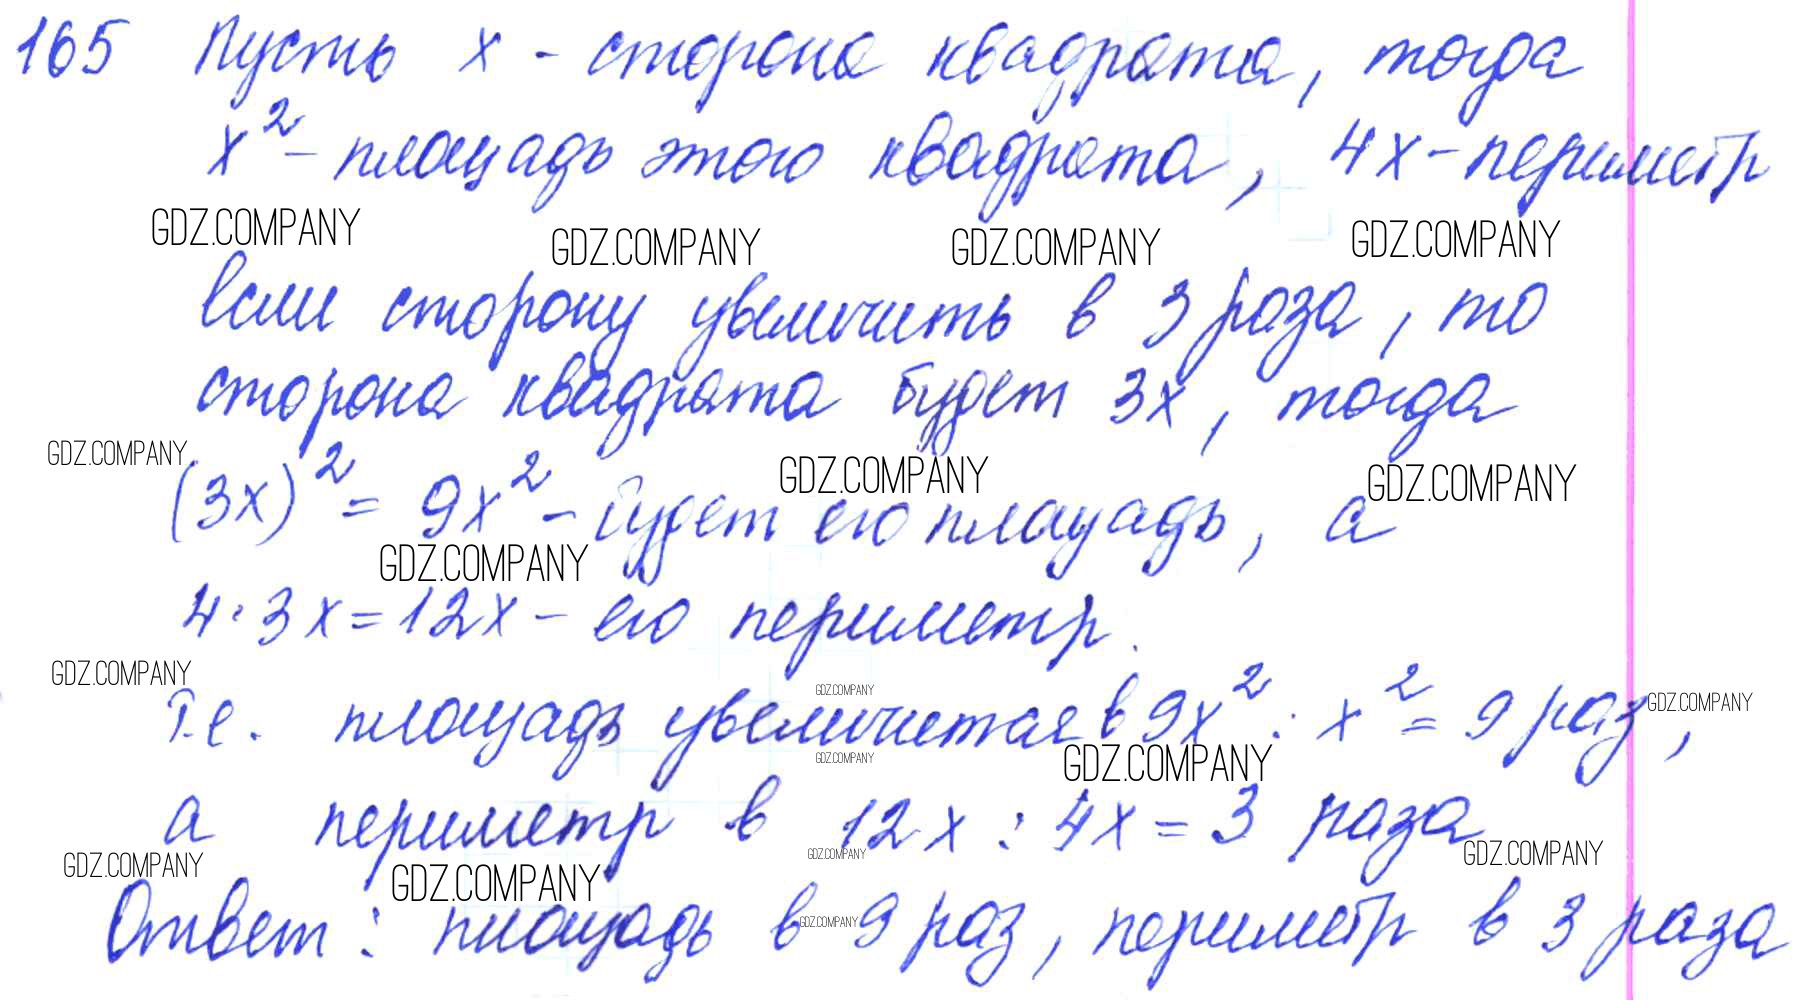 165 Пусть x - сторона квадрата, тогда
x² - площадь этого квадрата, 4x - периметр
GDZ.COMPANY GDZ.COMPANY GDZ.COMPANY GDZ.COMPANY
Если сторону увеличить в 3 раза, то
сторона квадрата будет 3x, тогда
GDZ.COMPANY GDZ.COMPANY GDZ.COMPANY
(3x)² = 9x² - будет его площадь, а
GDZ.COMPANY
4·3x=12x - его периметр.
GDZ.COMPANY GDZ.COMPANY
Т.е. площадь увеличится в 9x² : x² = 9 раз, GDZ.COMPANY
GDZ.COMPANY GDZ.COMPANY
а периметр в 12x : 4x = 3 раза
GDZ.COMPANY GDZ.COMPANY GDZ.COMPANY GDZ.COMPANY
Ответ: площадь в 9 раз, периметр в 3 раза
GDZ.COMPANY